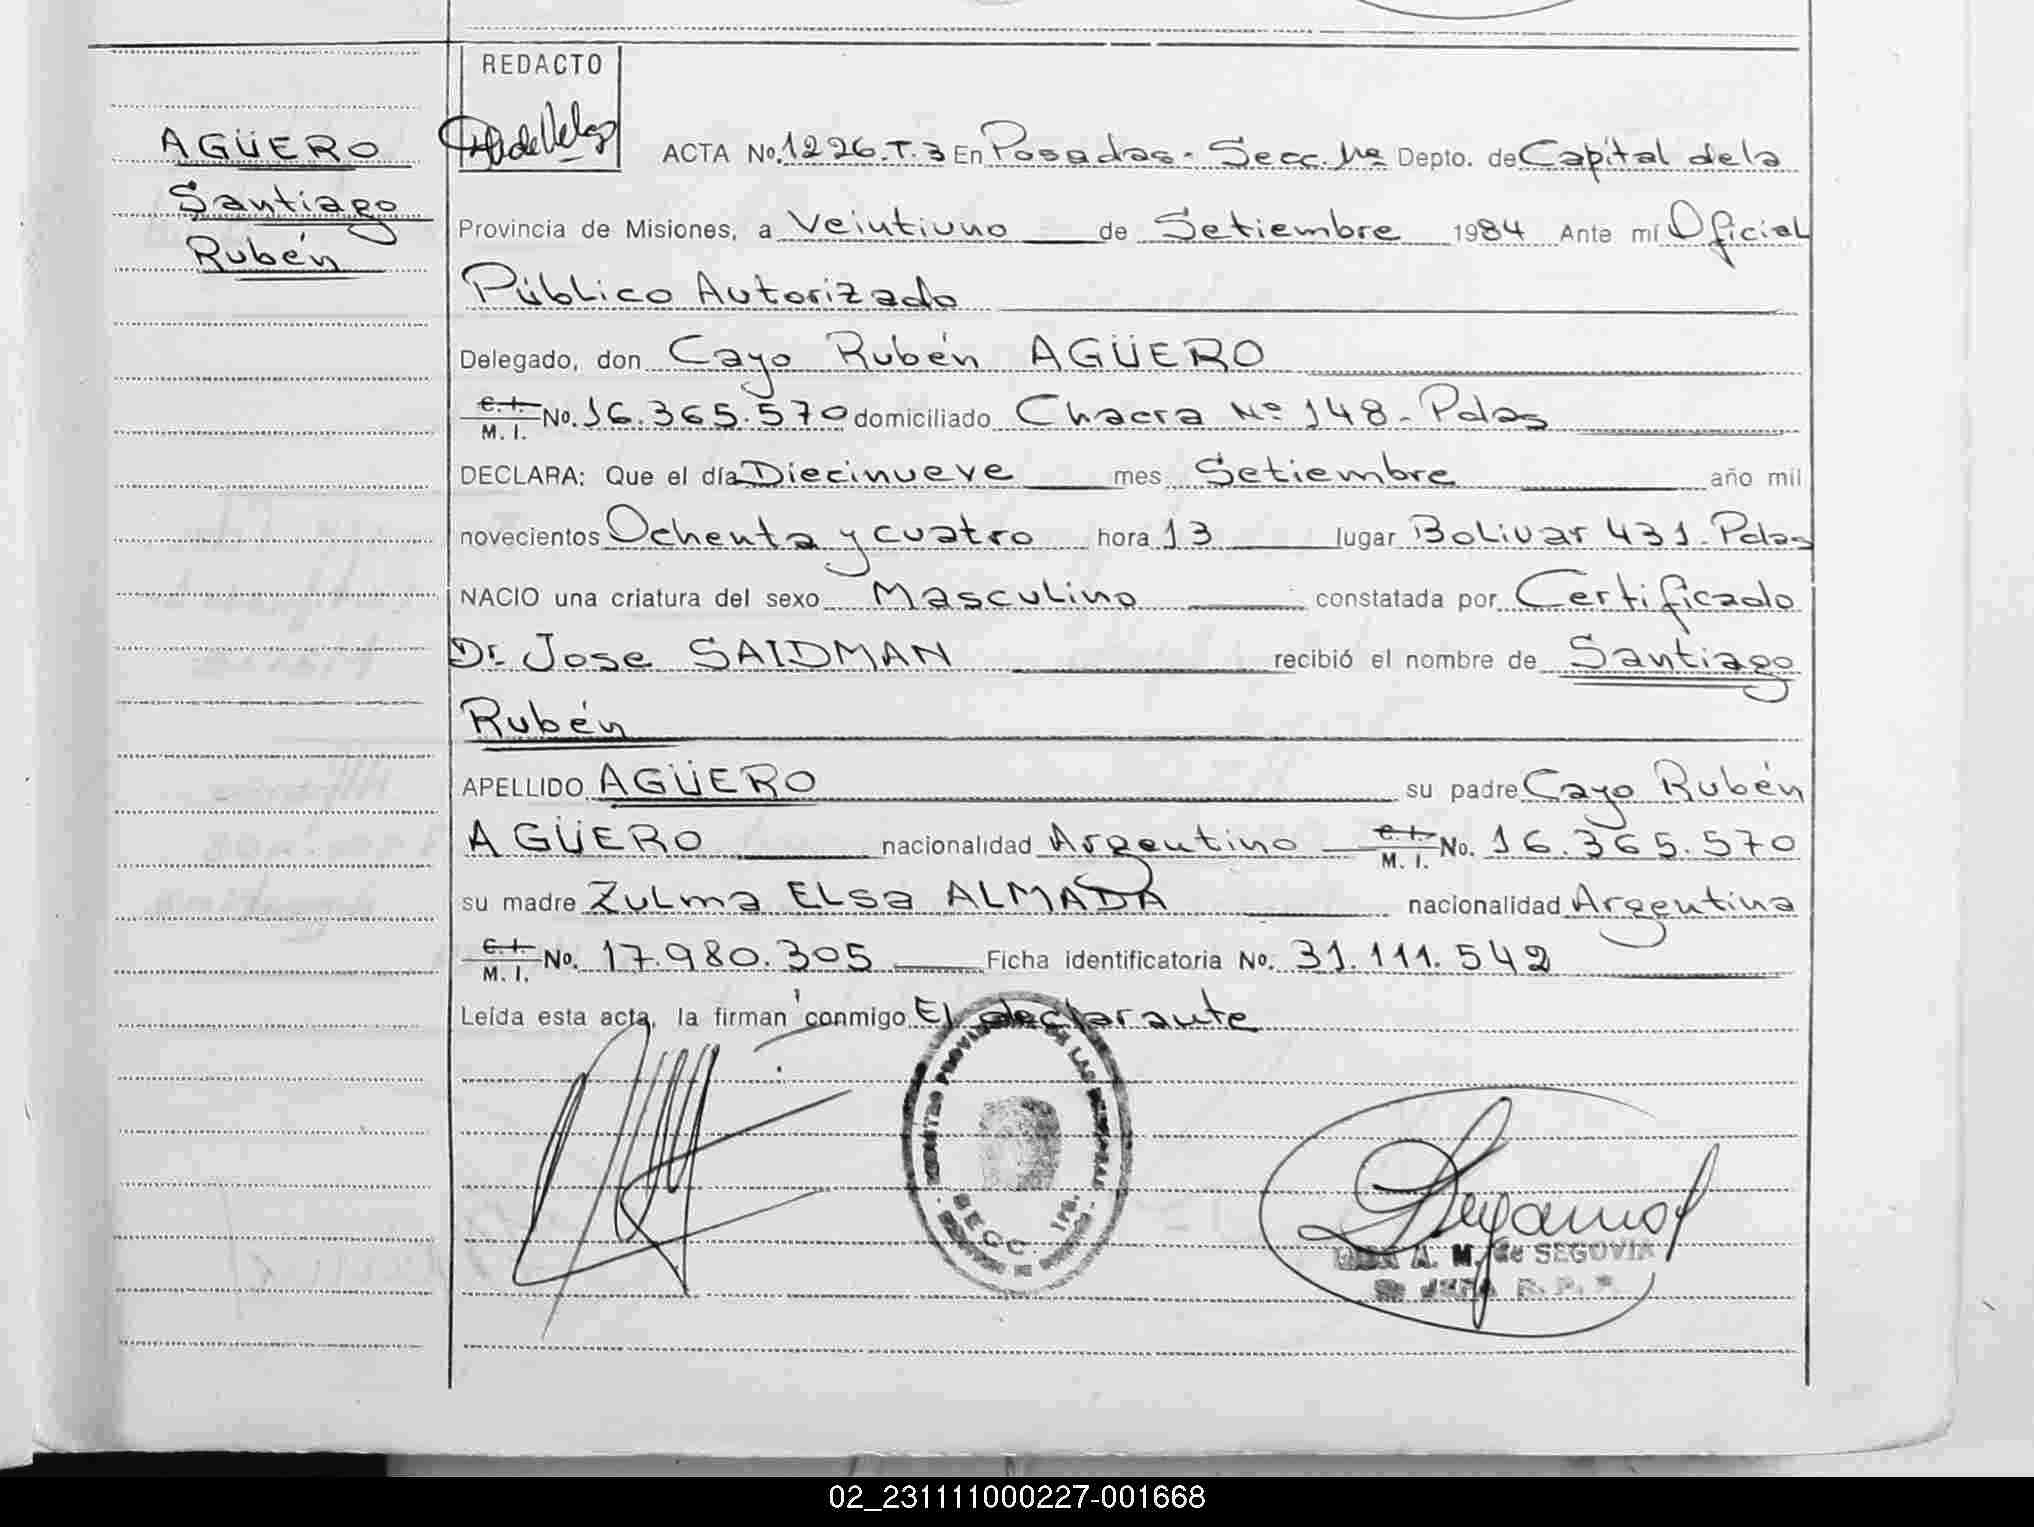 REDACTO
AGÜERO
Santiago
Rubén
ACTA No. 1226.T.3 En Posadas - Secc. 1ra Depto. de Capital de la
Provincia de Misiones, a Veintiuno de Setiembre 1984 Ante mí Oficial
Público Autorizado
Delegado, don Cayo Rubén AGÜERO
C. I. M. I. No. 16.365.570 domiciliado Chacra Nº 148 - Pdas
DECLARA: Que el día Diecinueve mes Setiembre año mil
novecientos Ochenta y cuatro hora 13 lugar Bolivar 431. Pdas
NACIO una criatura del sexo Masculino constatada por Certificado
Dr. Jose SAIDMAN recibió el nombre de Santiago
Rubén
APELLIDO AGÜERO su padre Cayo Rubén
AGÜERO nacionalidad Argentino C. I. M. I. No. 16.365.570
su madre Zulma Elsa ALMADA nacionalidad Argentina
C. I. M. I. No. 17.980.305 Ficha identificatoria No. 31.111.542
Leída esta acta, la firman conmigo El declarante
REGISTRO DE LAS PERSONAS
SECC. 1ra.
A. M. de SEGOVIA
JEFA R. P. P.
02_231111000227-001668